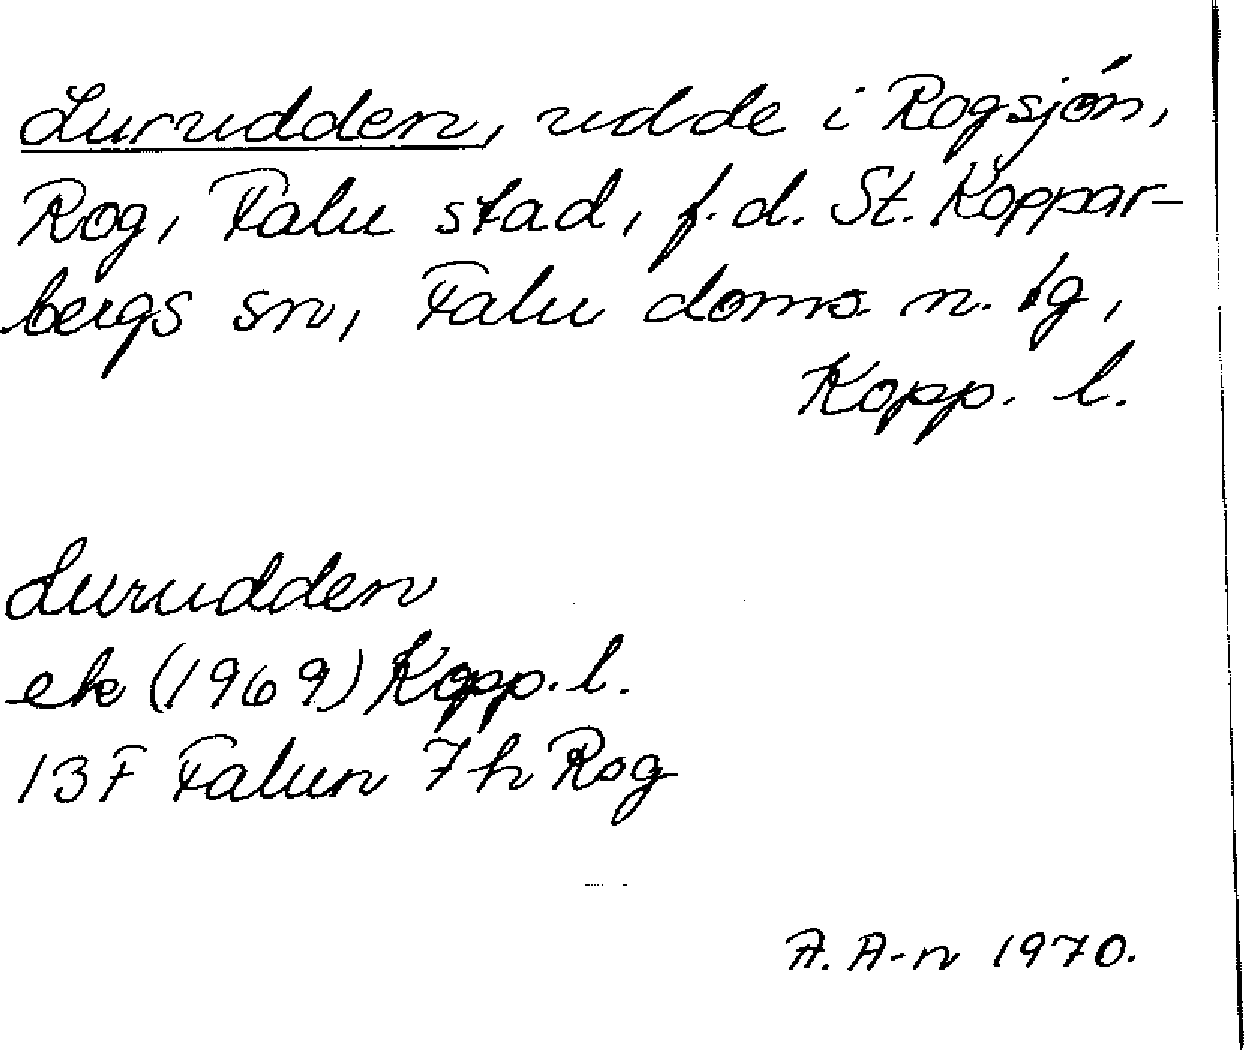 Lurudden, udde i Rogsjön,
Rog, Falu stad, f.d. St. Koppar-
bergs sn, Falu doms. n. tg,
Kopp. l.
Lurudden
ek (1969) Kopp. l.
13F Falun 7h Rog
A. A-n 1970.